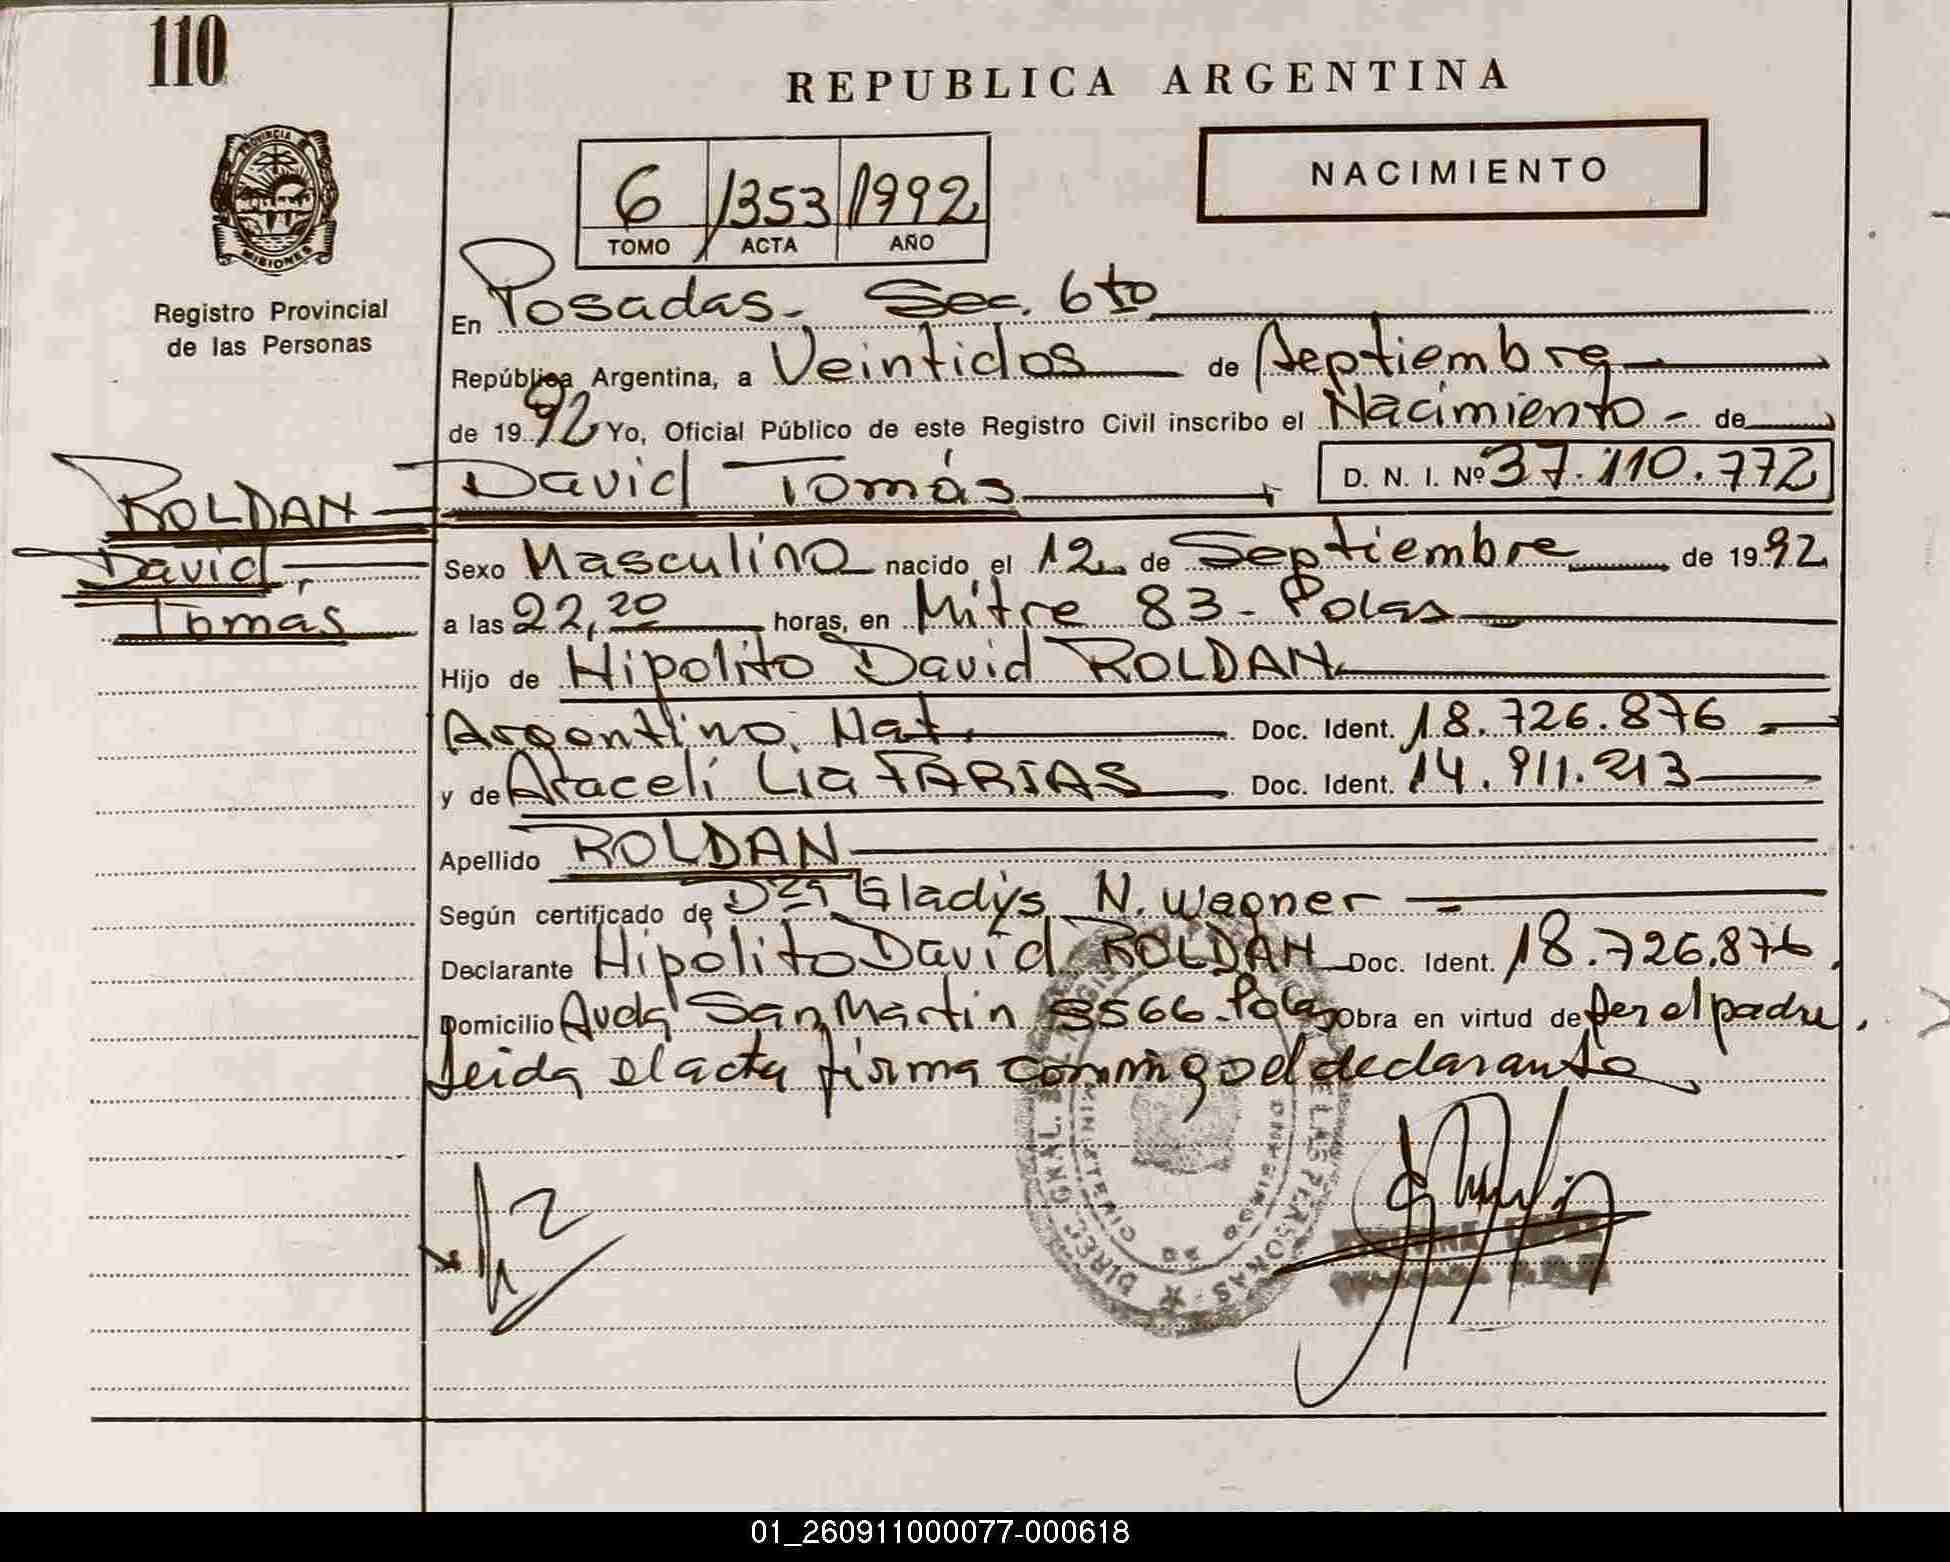 110
REPUBLICA ARGENTINA
NACIMIENTO
6 1353 1992
TOMO ACTA AÑO
PROVINCIA
MISIONES
Registro Provincial
de las Personas
En Posadas - Sec. 6to
República Argentina, a Veintidos de Septiembre
de 1992 Yo, Oficial Público de este Registro Civil inscribo el Nacimiento - de
ROLDAN
David
Tomás
David Tomás D. N. I. Nº 37.110.772
Sexo Masculino nacido el 12 de Septiembre de 1992
a las 22,20 horas, en Mitre 83 - Pdas
Hijo de Hipolito David ROLDAN
Argentino. Nat. Doc. Ident. 18.726.876
y de Araceli Lia FARIAS Doc. Ident. 14.911.213
Apellido ROLDAN
Según certificado de Dra Gladys N. Wagner
Declarante Hipólito David ROLDAN Doc. Ident. 18.726.876
Domicilio Avda San Martin 3566 - Pdas Obra en virtud de ser el padre
Leida el acta firma conmigo el declarante
DE LAS PERSONAS
MINISTERIO DE GOBIERNO
01_260911000077-000618